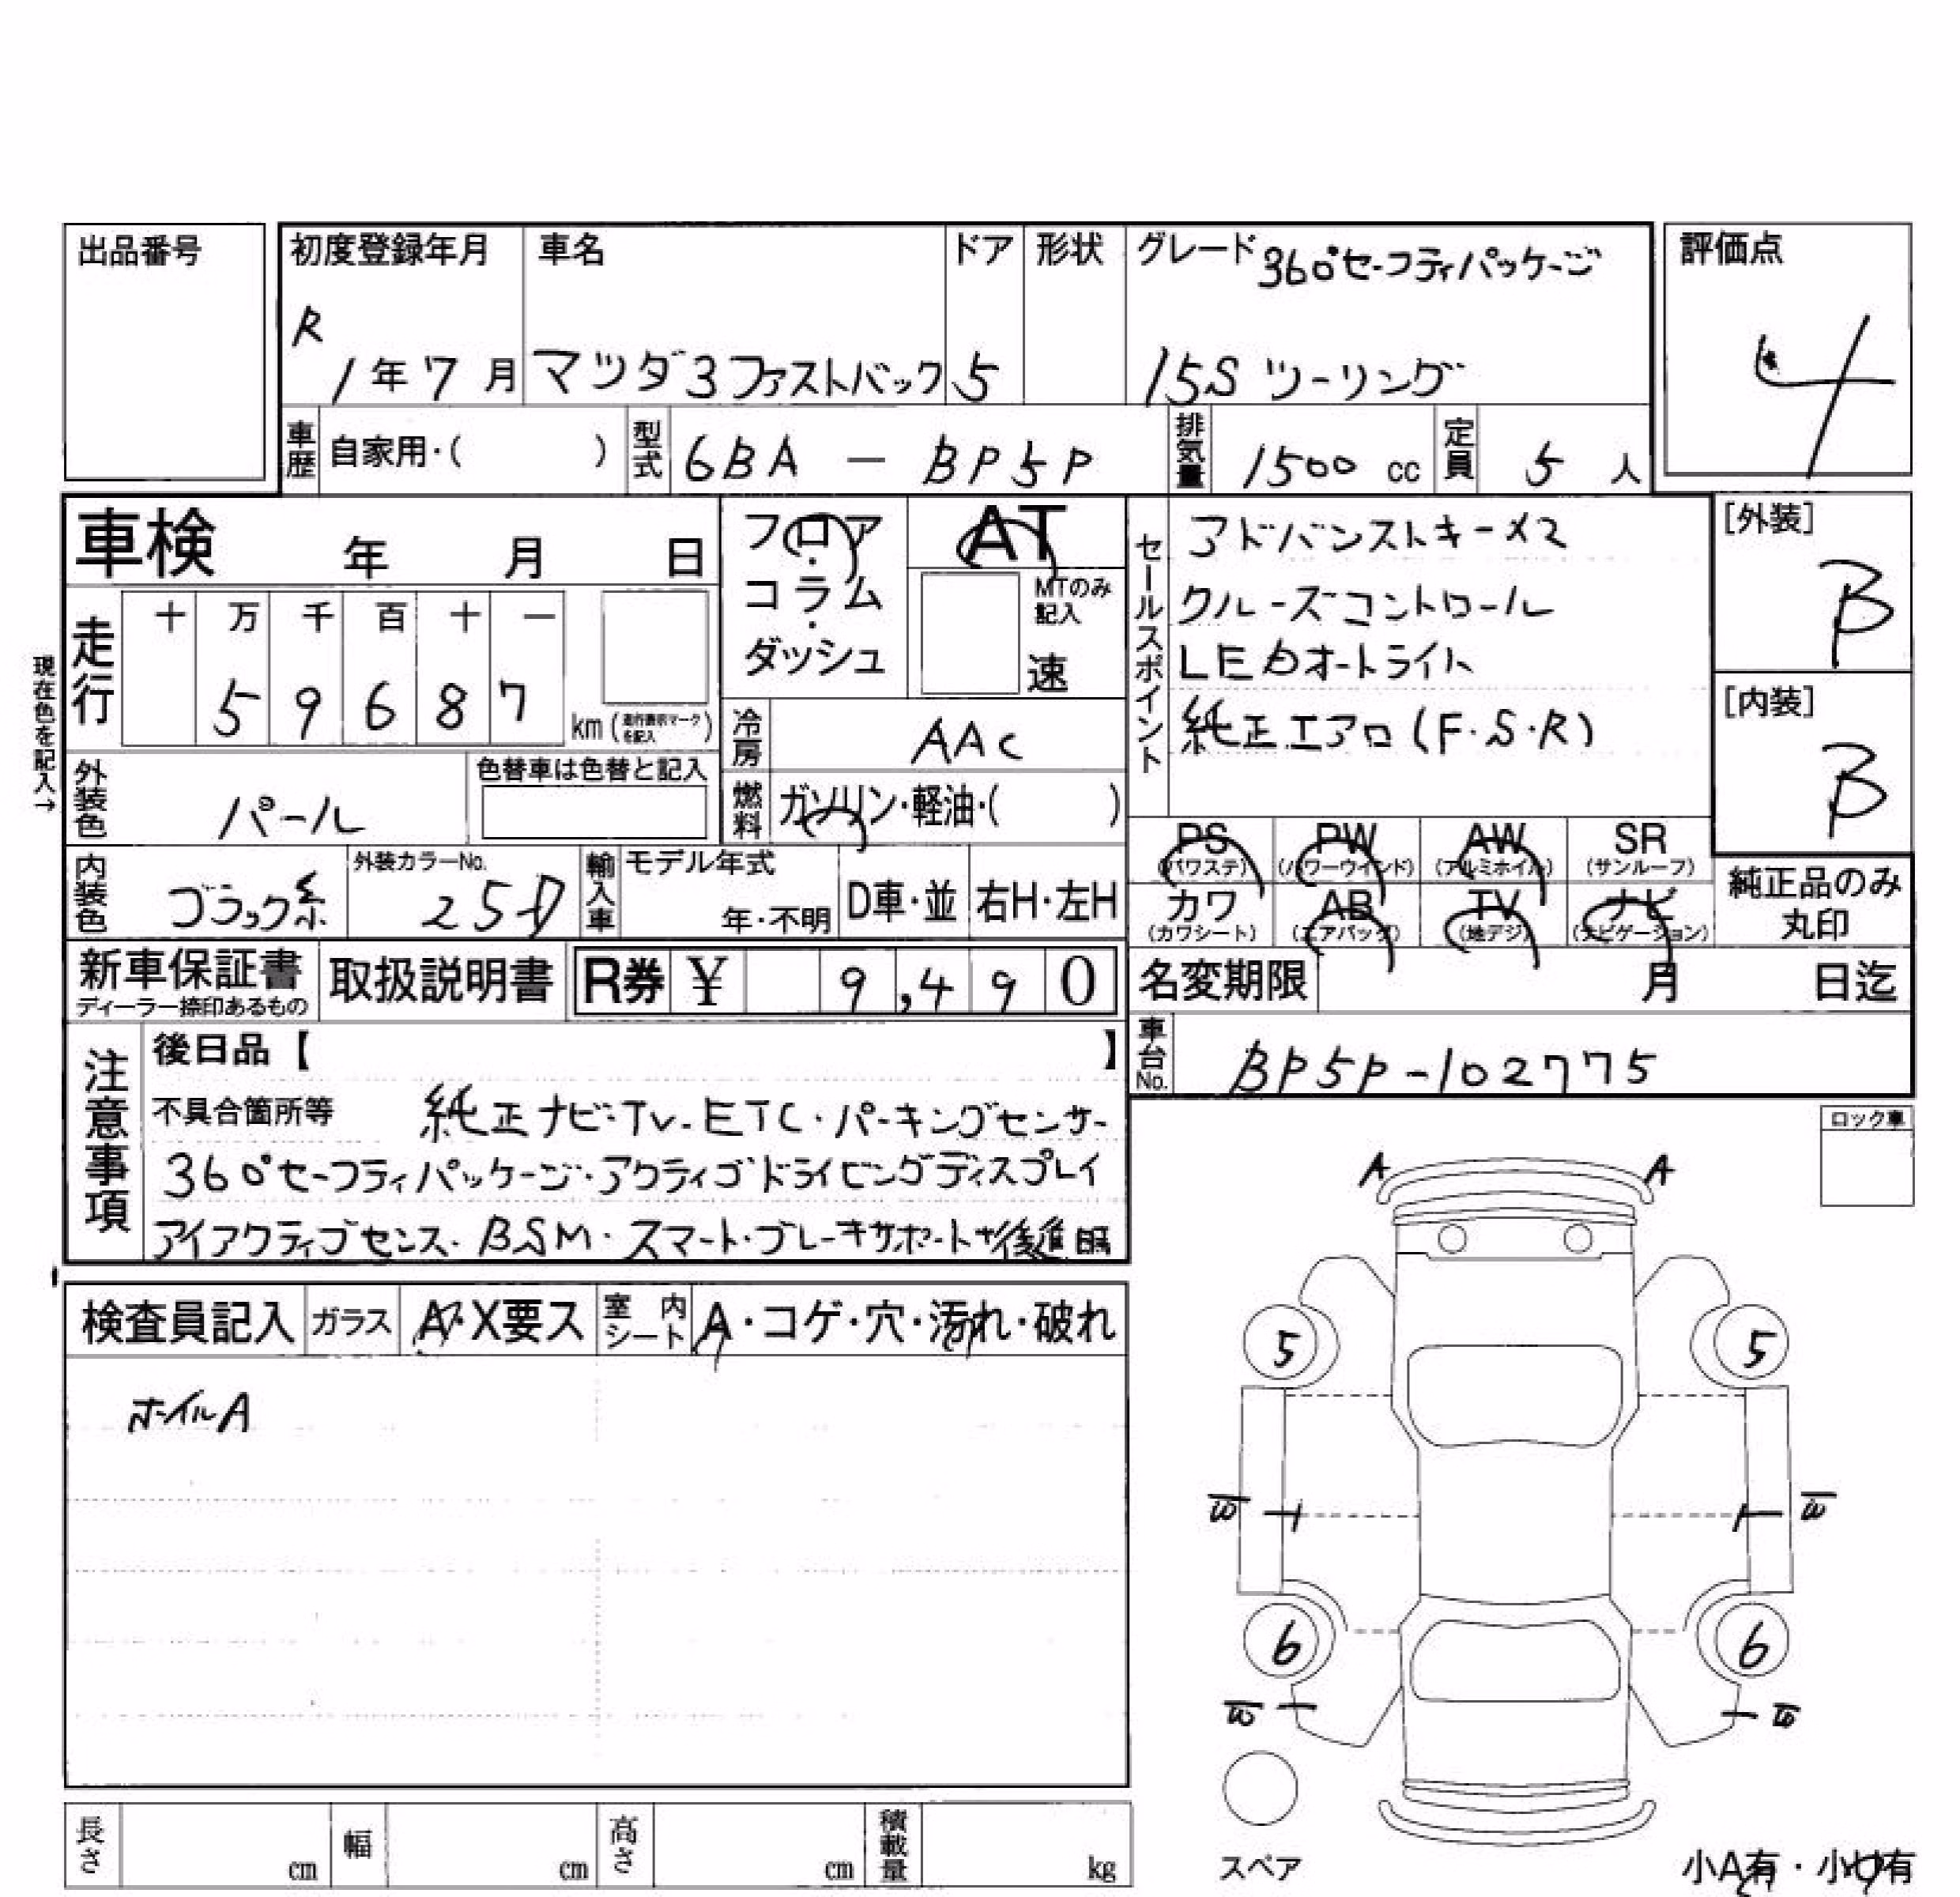 出品番号
初度登録年月 車名 ドア 形状 グレード 360°セーフティパッケージ 評価点
R
1年7月 マツダ3ファストバック 5 15S ツーリング 4
車歴 自家用・( ) 型式 6BA - BP5P 排気量 1500 cc 定員 5 人
車検 年 月 日 フロア・コラム・ダッシュ AT
MTのみ記入 速
セールスポイント
アドバンストキーx2
クルーズコントロール
LEDオートライト
純正エアロ(F・S・R)
[外装] B
[内装] B
現在色を記入→
走行 十 万 千 百 十 一
5 9 6 8 7 km (走行表示マークを記入)
冷房 AAC
外装色 パール 色替車は色替と記入
燃料 ガソリン・軽油・( )
PS (パワステ) PW (パワーウィンド) AW (アルミホイル) SR (サンルーフ)
カワ (カワシート) AB (エアバッグ) TV (地デジ) ナビ (ナビゲーション)
純正品のみ丸印
内装色 ブラック系 外装カラーNo. 25D 輸入車 モデル年式 年・不明 D車・並 右H・左H
新車保証書 ディーラー捺印あるもの 取扱説明書 R券 ¥ 9,490
名変期限 月 日迄
車台No. BP5P-102775
注意事項
後日品【 】
不具合箇所等 純正ナビ・TV・ETC・パーキングセンサー
360°セーフティパッケージ・アクティブドライビングディスプレイ
アイアクティブセンス・BSM・スマート・ブレーキサポート
ロック車
検査員記入 ガラス A・X要ス 室内シート A・コゲ・穴・汚れ・破れ
ホイルA
A A
5 5
W W
6 6
W W
スペア
小A有・小U有
長さ cm 幅 cm 高さ cm 積載量 kg